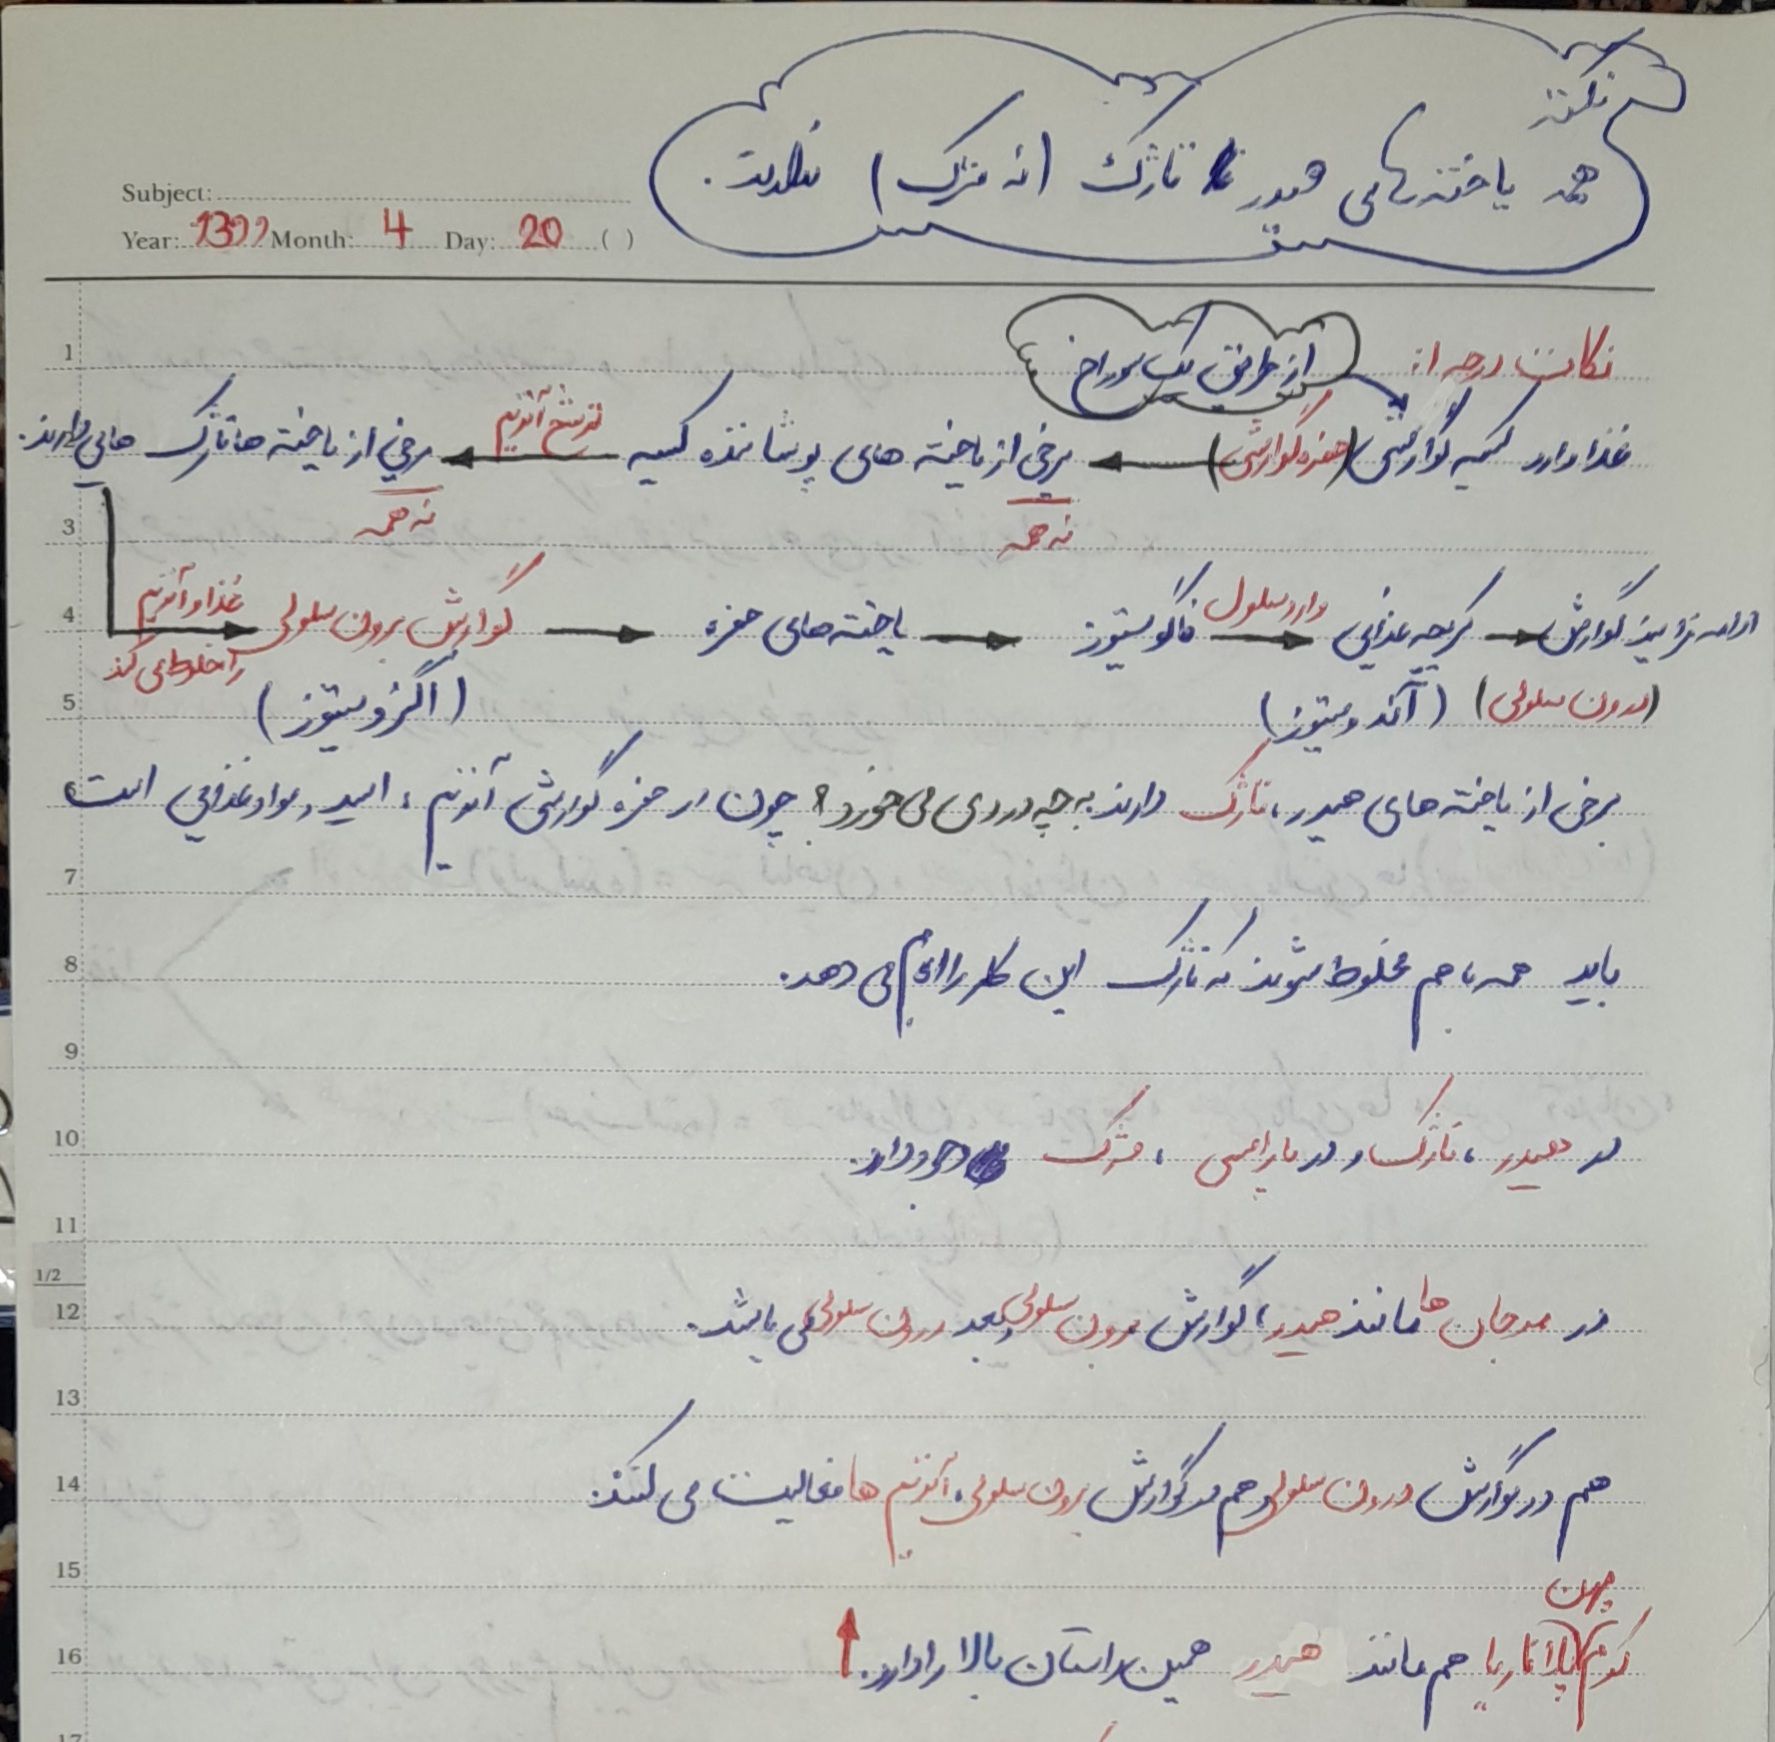 نکته
همه یاخته‌هایی هیدر تاژک (نه مژک) ندارند.
Subject:
Year: 1399 Month: 4 Day: 20 ( )
نکات درجه ۱:
از طریق یک سوراخ
غذا وارد کیسه گوارشی (حفره گوارشی) ← برخی از یاخته های پوشاننده کیسه ← ترشح آنزیم برخی از یاخته ها تاژک هایی دارند.
نه همه نه همه
غذا و آنزیم را مخلوط می کند → گوارش برون سلولی → یاخته های حفره → فاگوسیتوز → وارد سلول کریچه غذایی → ادامه فرایند گوارش
(اگزوسیتوز) (آندوسیتوز) (درون سلولی)
برخی از یاخته های هیدر، تاژک دارند به چه دردی می خورد؟ چون در حفره گوارشی آنزیم، اسید و مواد غذایی است
باید همه با هم مخلوط شوند که تاژک این کار را انجام می دهد.
در هیدر، تاژک و در پارامسی، مژک وجود دارد.
در مرجان ها مانند هیدر، گوارش برون سلولی و بعد درون سلولی می باشد.
هم در گوارش درون سلولی و هم در گوارش برون سلولی، آنزیم ها فعالیت می کنند.
پهن
کرم پلاناریا هم مانند هیدر همین داستان بالا را دارد. ↑
1
3
4
5
7
8
9
10
11
1/2
12
13
14
15
16
17